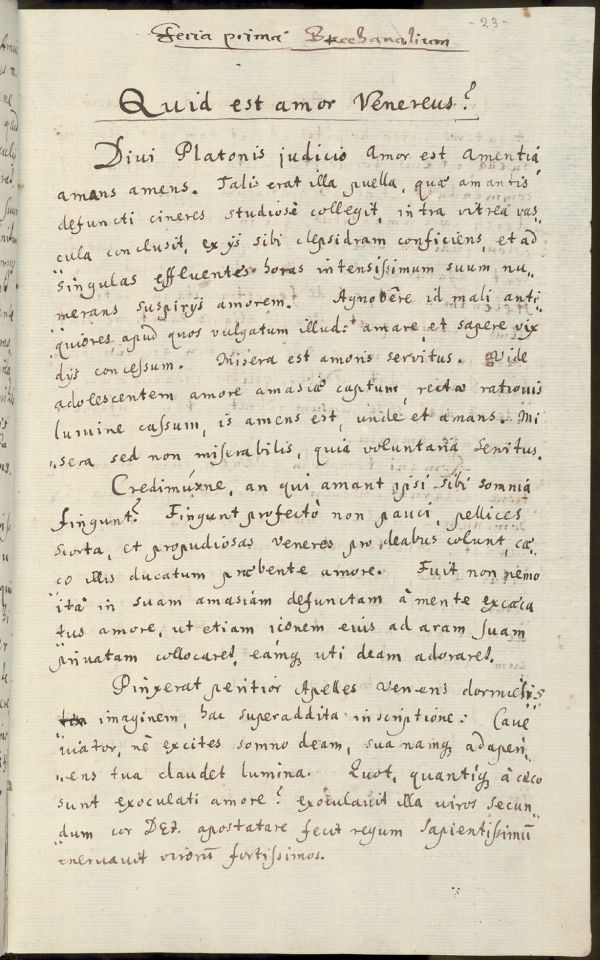 - 23 -
Feria prima Bacchanalium
Quid est amor Venereus?
Diui Platonis judicio amor est amentia,
amans amens. Talis erat illa puella, quæ amantis
defuncti cineres studiosè collegit, intra vitrea vas„
cula conclusit, ex ijs sibi clepsidram conficiens, et ad
singulas effluentes horas intensissimum suum, nu„
merans suspirijs amorem. Agnovêre id mali anti„
quiores, apud quos vulgatum illud: amare, et sapere vix
dijs concessum. Misera est amoris servitus. Vide
adolescentem amore amasiæ captum, rectæ rationis
lumine cassum, is amens est, unde et amans. Mi
„sera sed non miserabilis, quia voluntaria servitus.
Credimúsne, an qui amant ipsi sibi somnia
fingunt? Fingunt profectò non pauci, pellices
scorta, et propudiosas veneres pro deabus colunt, cæ„
co illis ducatum præbente amore. Fuit non nemo
ità in suam amasiam defunctam â mente excæca
tus amore, ut etiam iconem eius ad aram suam
priuatam collocaret, eámq, uti deam adoraret.
Pinxerat peritior Apelles Veneris dormientis
imaginem, hac superaddita inscriptione: Caue
viator, nè excites somno deam, sua namq, adaperi„
„ens tua claudet lumina. Quot, quantíq, â cæco
sunt exoculati amore? exoculauit illa viros secun„
dum cor DEI. apostatare fecit regum sapientissimū
eneruauit virorū fortissimos.